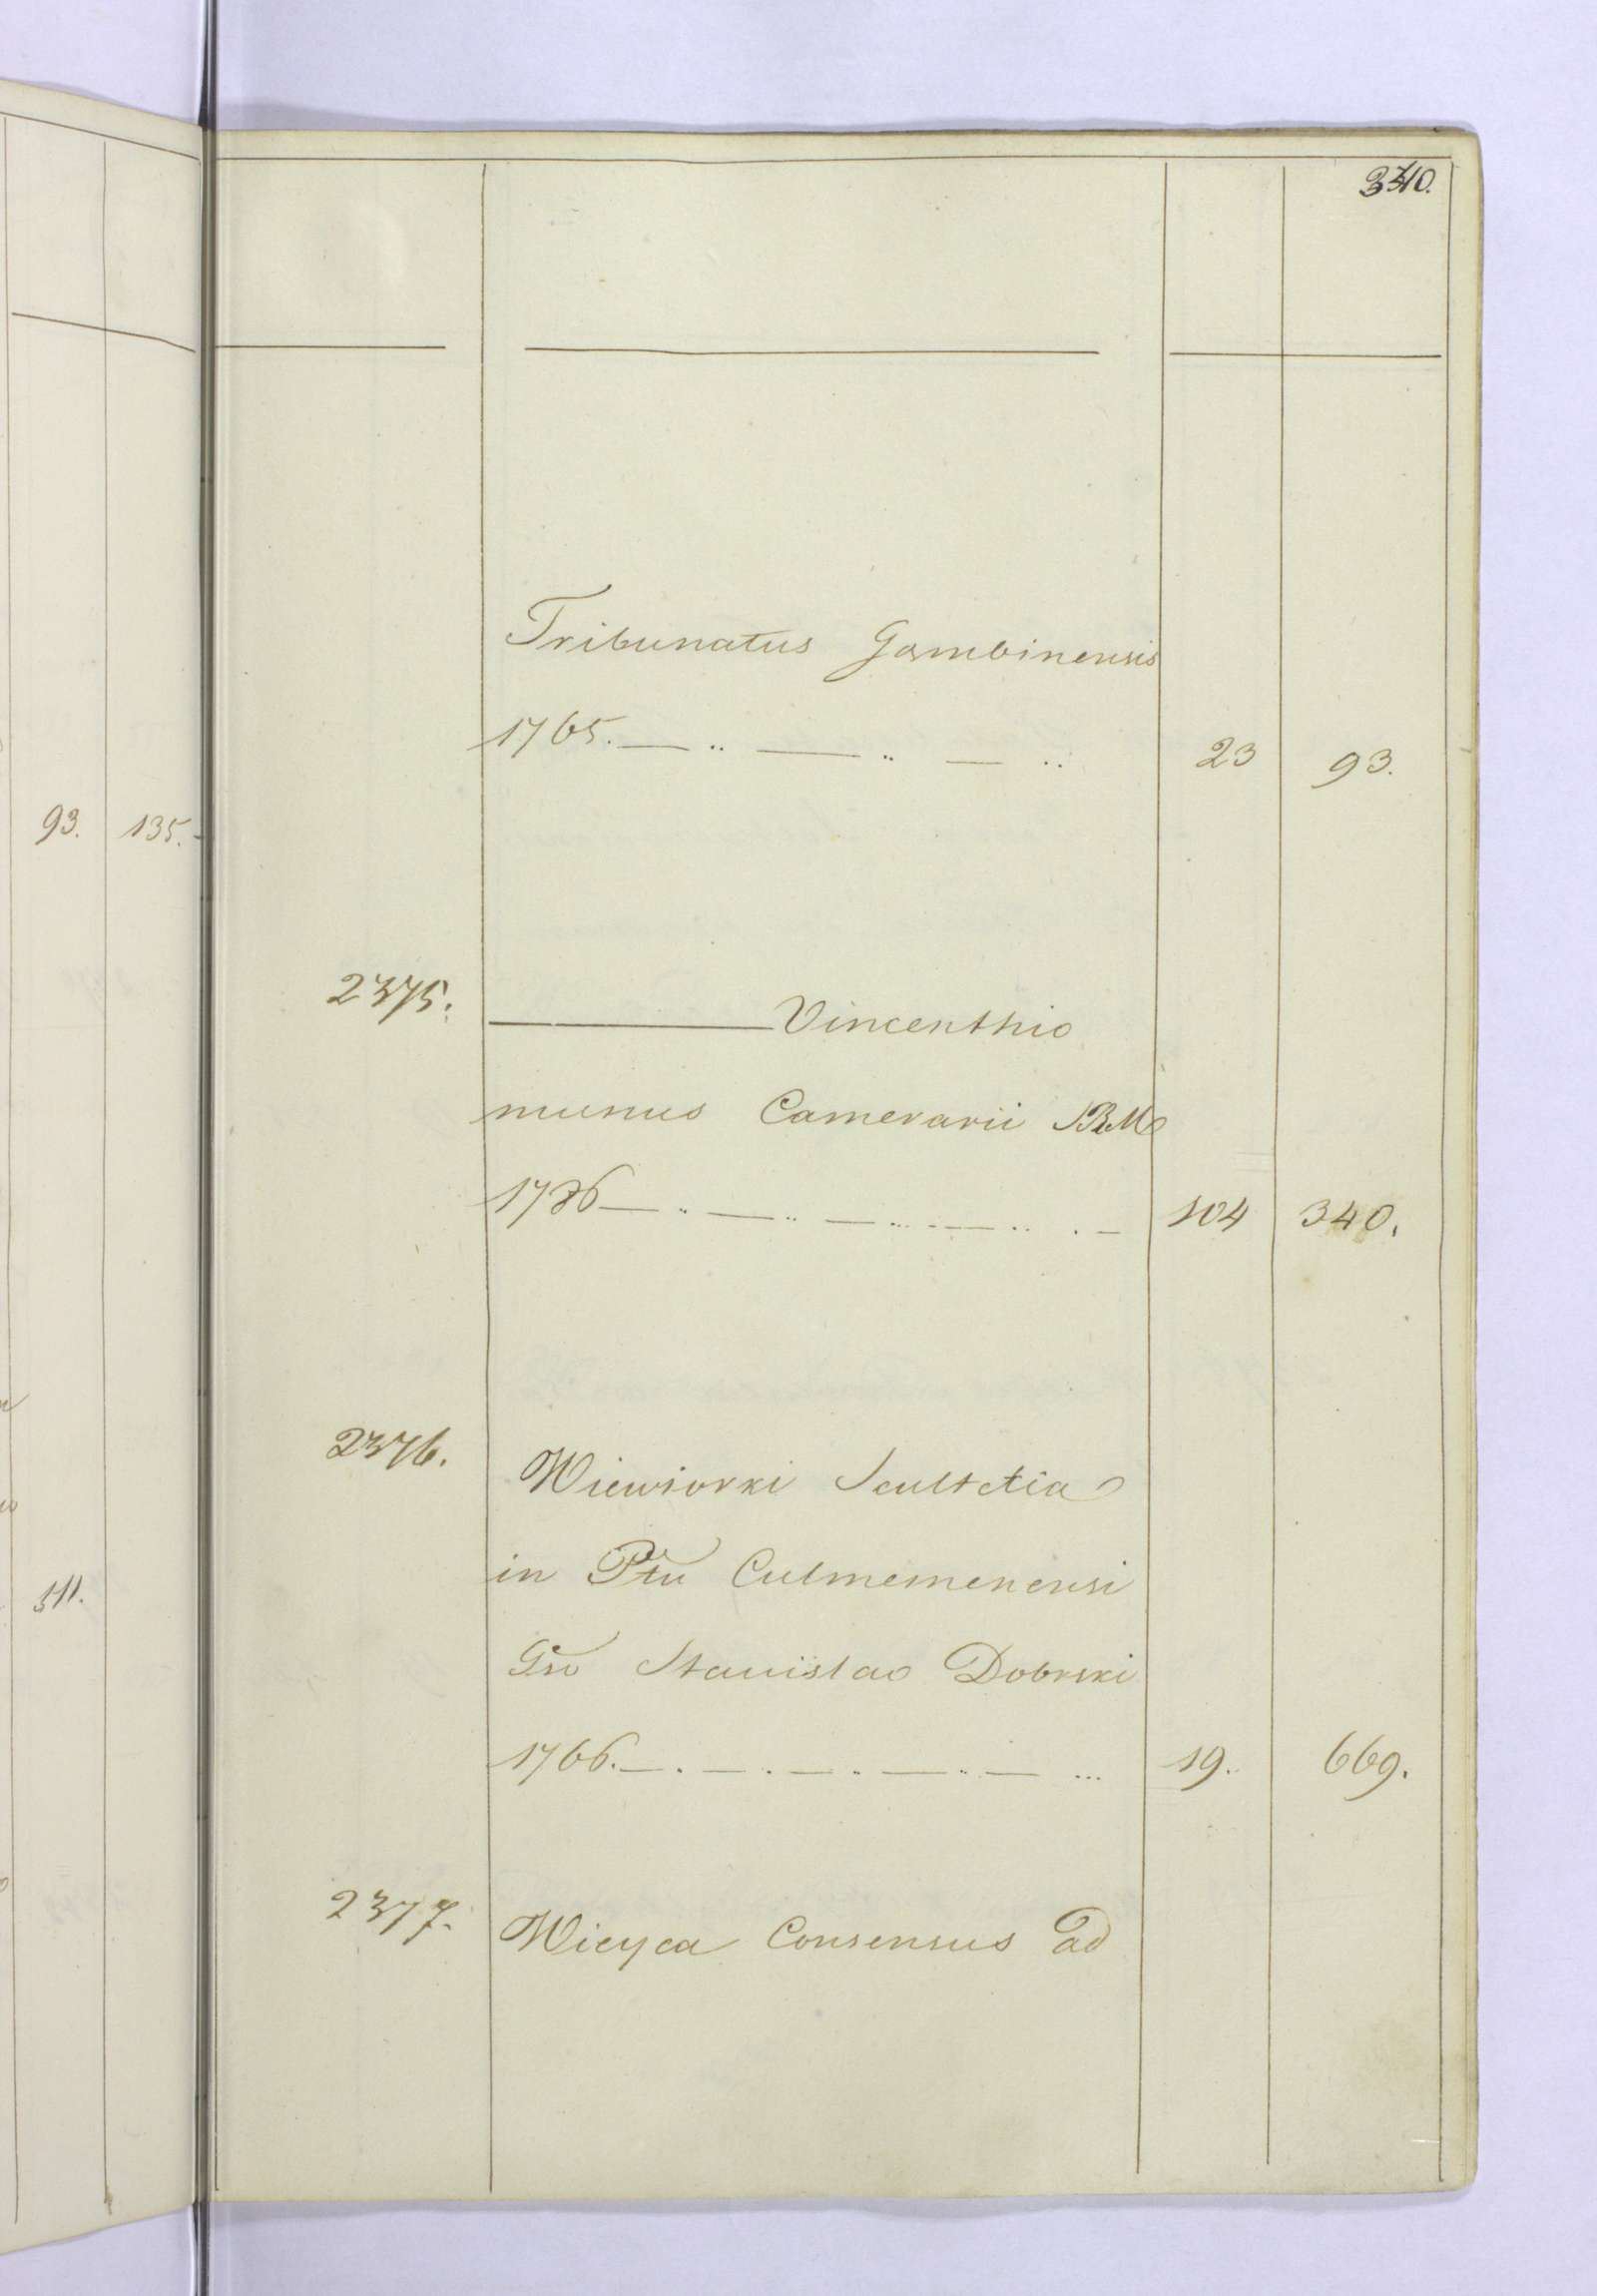 340.
Tribunatus Gombinensis
1765. 23 93.
93. 135.
2375. Vincenthio
munus Camerarii SRM
1786 104 340.
2376. Wiewiorki Scultetia
in Ptu Culmemenensi
511.
Gso Stanislao Dobrski
1766. 19. 669.
2377. Wieyca Consensus ad